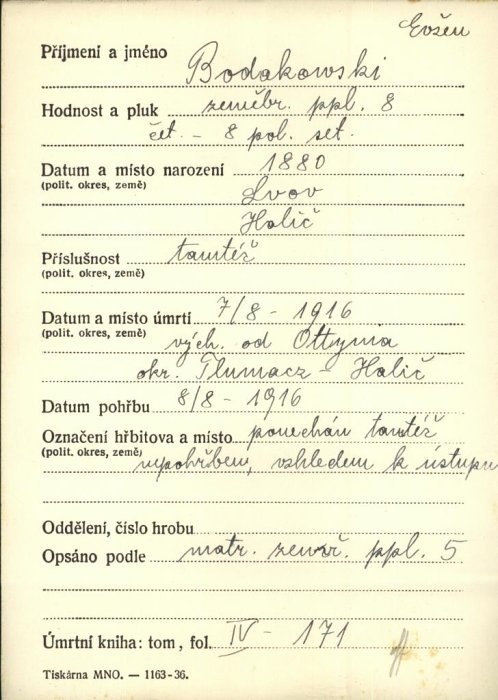 Evžen
Příjmení a jméno Bodakowski
Hodnost a pluk zeměbr. ppl. 8
čet. - 8 pol. set.
Datum a místo narození 1880
(polit. okres, země) Lvov
Halič
Příslušnost tamtéž
(polit. okres, země)
Datum a místo úmrtí 7/8 - 1916
(polit. okres, země) vých. od Ottynia
okr. Tlumacz - Halič
Datum pohřbu 8/8 - 1916
Označení hřbitova a místo ponechán tamtéž
(polit. okres, země) nepohřben, vzhledem k ústupu
Oddělení, číslo hrobu
Opsáno podle matr. ppl. 5
Úmrtní kniha: tom, fol. IV - 171
Tiskárna MNO. — 1163-36.